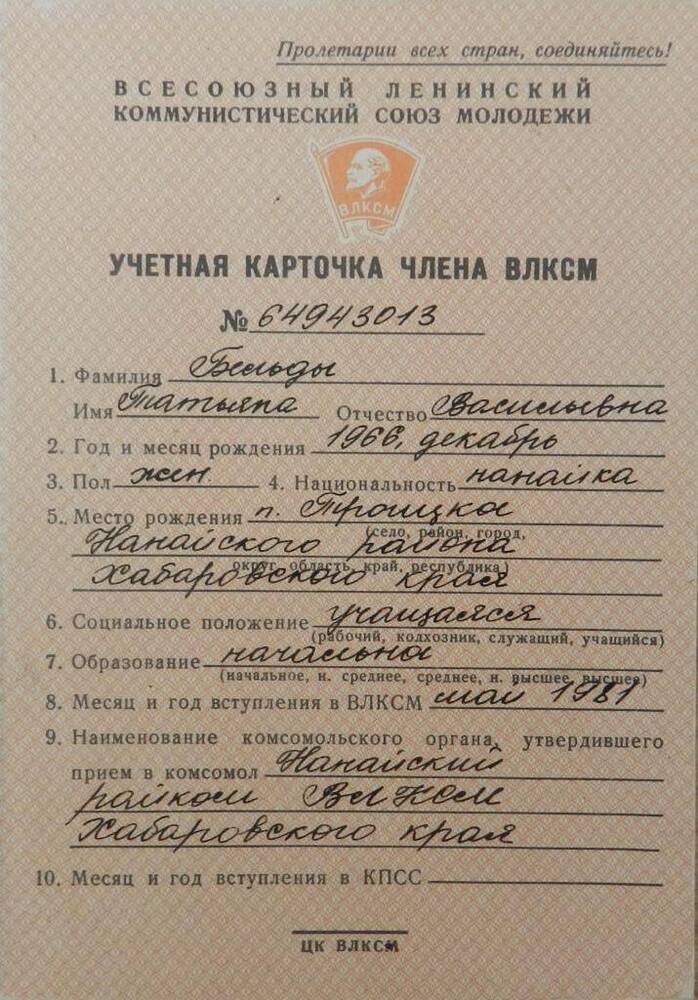 Пролетарии всех стран, соединяйтесь!
ВСЕСОЮЗНЫЙ ЛЕНИНСКИЙ
КОММУНИСТИЧЕСКИЙ СОЮЗ МОЛОДЕЖИ
ВЛКСМ
УЧЕТНАЯ КАРТОЧКА ЧЛЕНА ВЛКСМ
№ 64943013
1. Фамилия Бельды
Имя Татьяна Отчество Васильевна
2. Год и месяц рождения 1966, декабрь
3. Пол жен. 4. Национальность нанайка
5. Место рождения п. Троицкое
(село, район, город,
Нанайского района
округ, область, край, республика)
Хабаровского края
6. Социальное положение учащаяся
(рабочий, колхозник, служащий, учащийся)
7. Образование начальна
(начальное, н. среднее, среднее, н. высшее, высшее)
8. Месяц и год вступления в ВЛКСМ май 1981
9. Наименование комсомольского органа, утвердившего
прием в комсомол Нанайский
райком ВЛКСМ
Хабаровского края
10. Месяц и год вступления в КПСС
ЦК ВЛКСМ